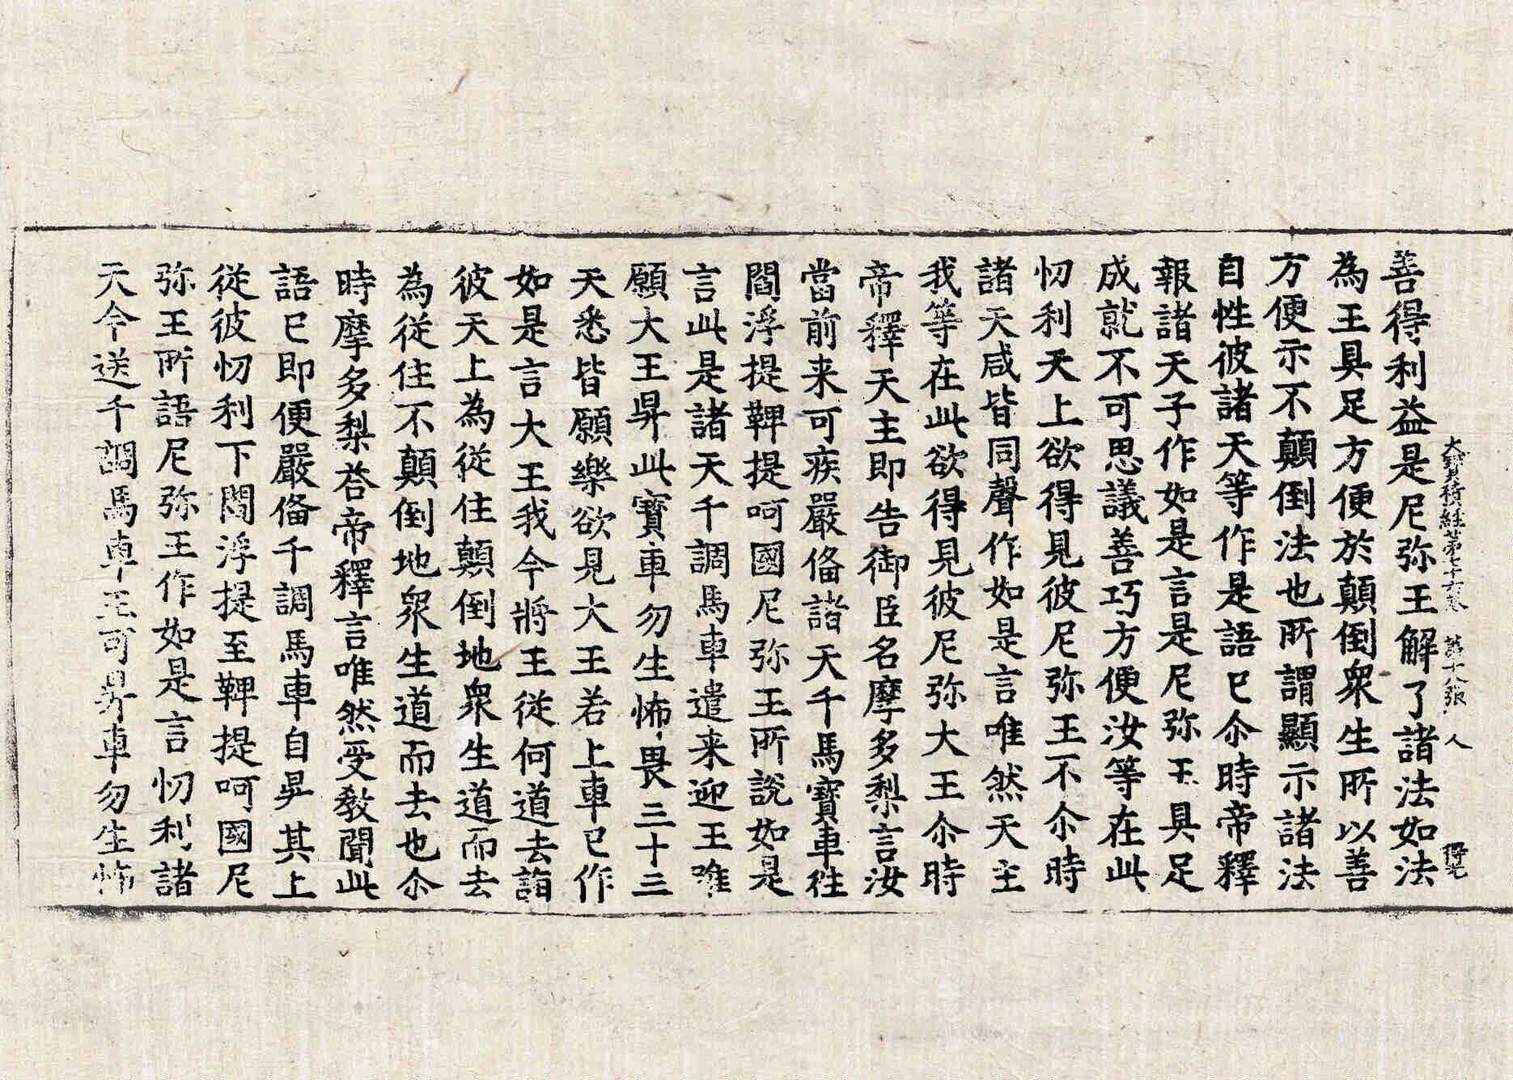 大寶積經第七十六卷 第十八張 人
善得利益是尼弥王解了諸法如法
為王具足方便於顛倒衆生所以善
方便示不顛倒法也所謂顯示諸法
自性彼諸天等作是語已尒時帝釋
報諸天子作如是言是尼弥王具足
成就不可思議善巧方便汝等在此
忉利天上欲得見彼尼弥王不尒時
諸天咸皆同聲作如是言唯然天主
我等在此欲得見彼尼弥大王尒時
帝釋天主即告御臣名摩多梨言汝
當前来可疾嚴俻諸天千馬寶車往
閻浮提鞞提呵國尼弥王所說如是
言此是諸天千調馬車遣来迎王唯
願大王昇此寶車勿生怖畏三十三
天悉皆願樂欲見大王若上車已作
如是言大王我今將王從何道去詣
彼天上為從住顛倒地衆生道而去
為從住不顛倒地衆生道而去也尒
時摩多梨荅帝釋言唯然受教聞此
語已即便嚴俻千調馬車自昇其上
從彼忉利下閻浮提至鞞提呵國尼
弥王所語尼弥王作如是言忉利諸
天今送千調馬車王可昇車勿生怖